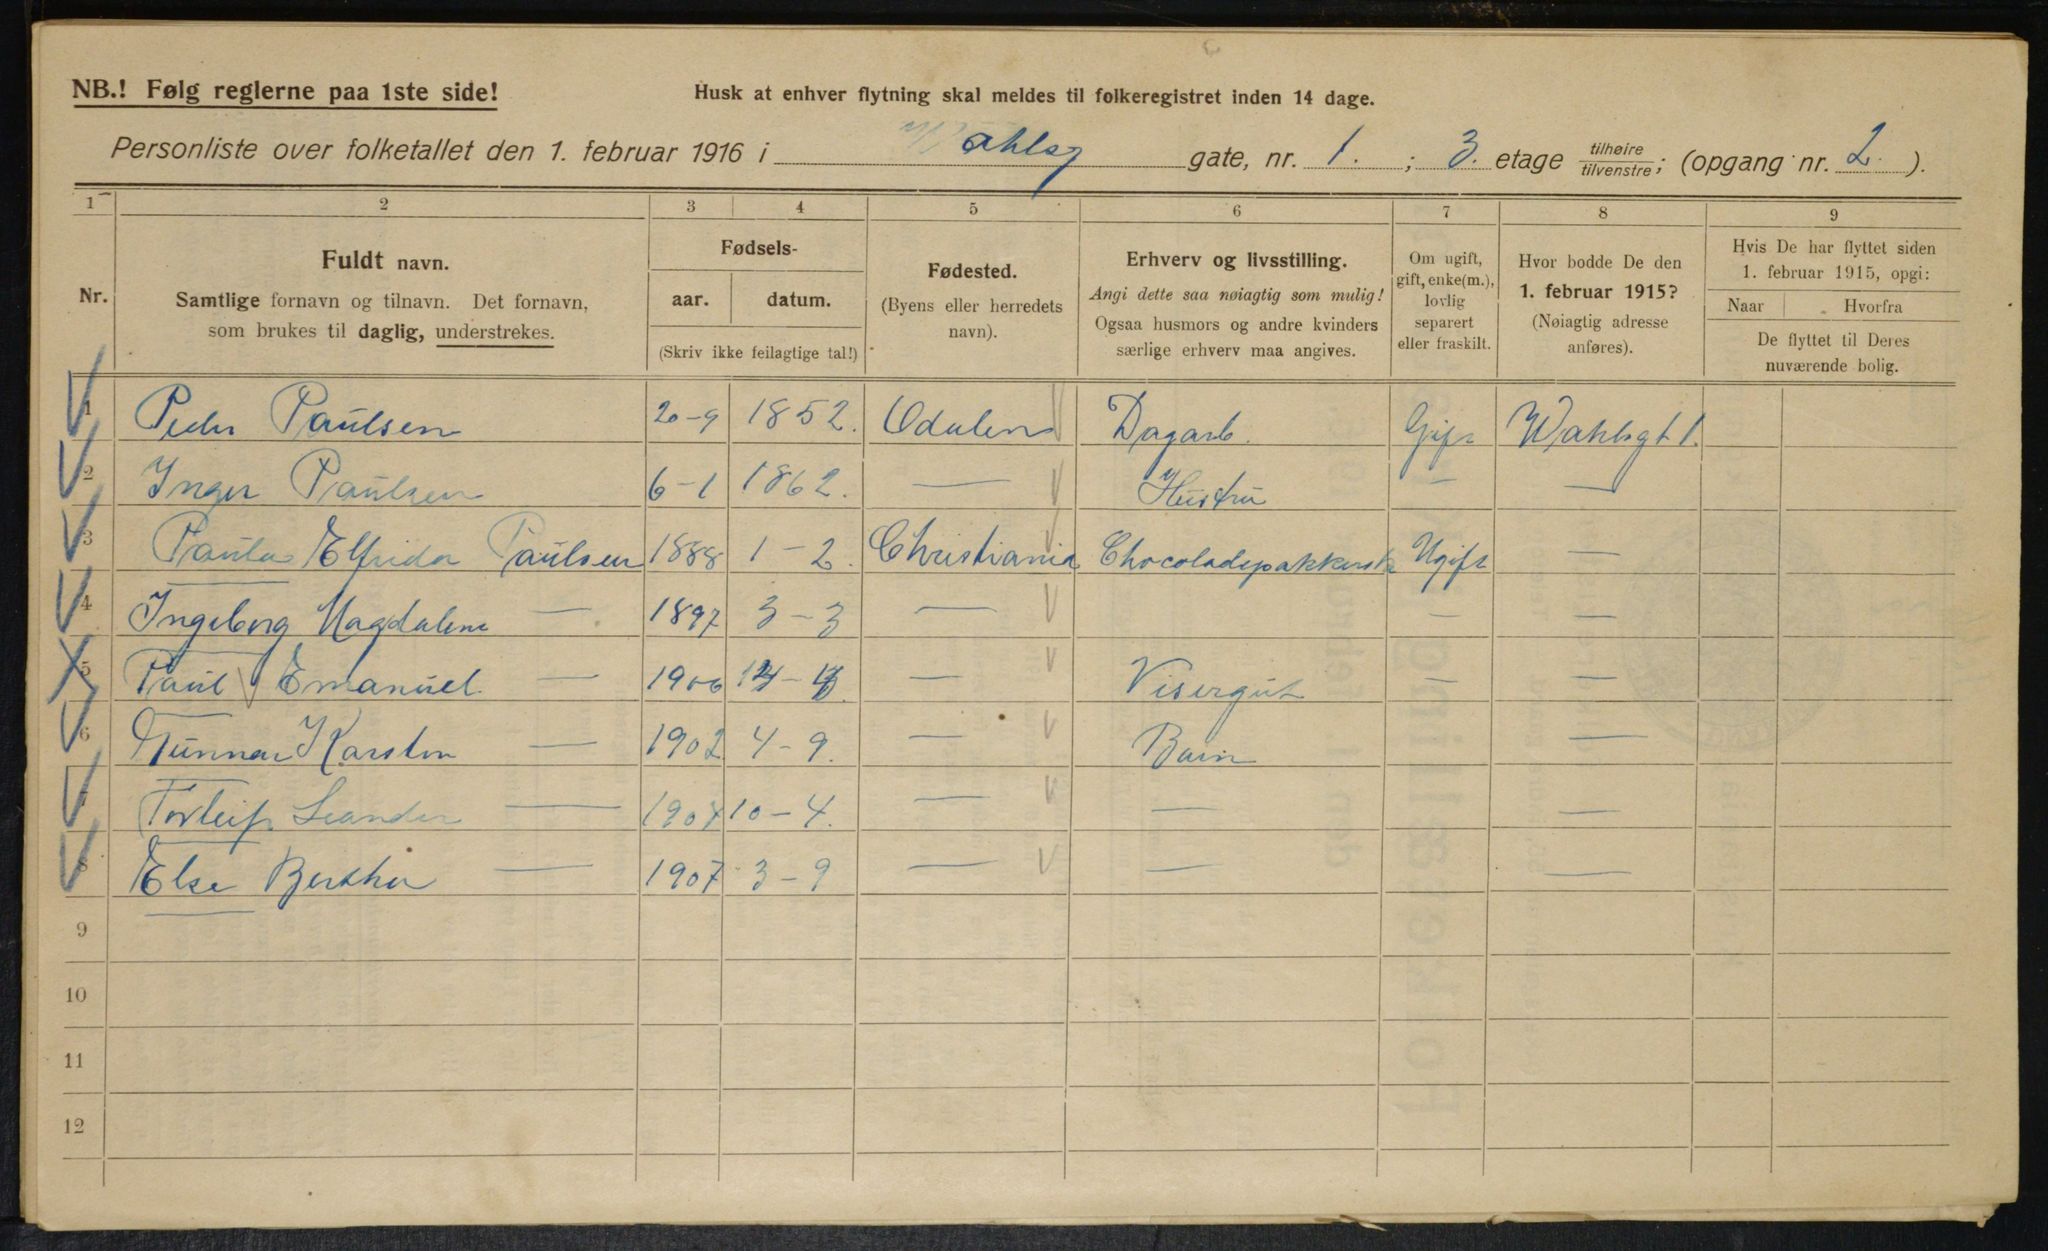 NB.! Følg reglerne paa 1ste side!
Husk at enhver flytning skal meldes til folkeregistret inden 14 dage.
Personliste over folketallet den 1. februar 1916 i Wahlsg gate, nr. 1. ; 3. etage tilhøire/tilvenstre; (opgang nr. 2. ).
1 2 3 4 5 6 7 8 9
Nr.
Fuldt navn.
Samtlige fornavn og tilnavn. Det fornavn,
som brukes til daglig, understrekes.
Fødsels-
aar. datum.
(Skriv ikke feilagtige tal!)
Fødested.
(Byens eller herredets
navn).
Erhverv og livsstilling.
Angi dette saa nøiagtig som mulig!
Ogsaa husmors og andre kvinders
særlige erhverv maa angives.
Om ugift,
gift, enke(m.),
lovlig
separert
eller fraskilt.
Hvor bodde De den
1. februar 1915?
(Nøiagtig adresse
anføres).
Hvis De har flyttet siden
1. februar 1915, opgi:
Naar Hvorfra
De flyttet til Deres
nuværende bolig.
1 Peder Paulsen 20-9 1852. Odalen Dagarb. Gift Wahlsgt 1.
2 Inger Paulsen 6-1 1862. — Hustru — —
3 Paula Elfrida Paulsen 1888 1-2. Christiania Chocoladepakkerske Ugift —
4 Ingeborg Magdalene — 1897 3-3 — — —
5 Paul Emanuel — 1900 — Visergut — —
6 Gunnar Karsten — 1902 4-9. — Barn —
7 Torleif Leander — 1904 10-4. — — —
8 Else Berthe — 1907 3-9 — — —
9
10
11
12